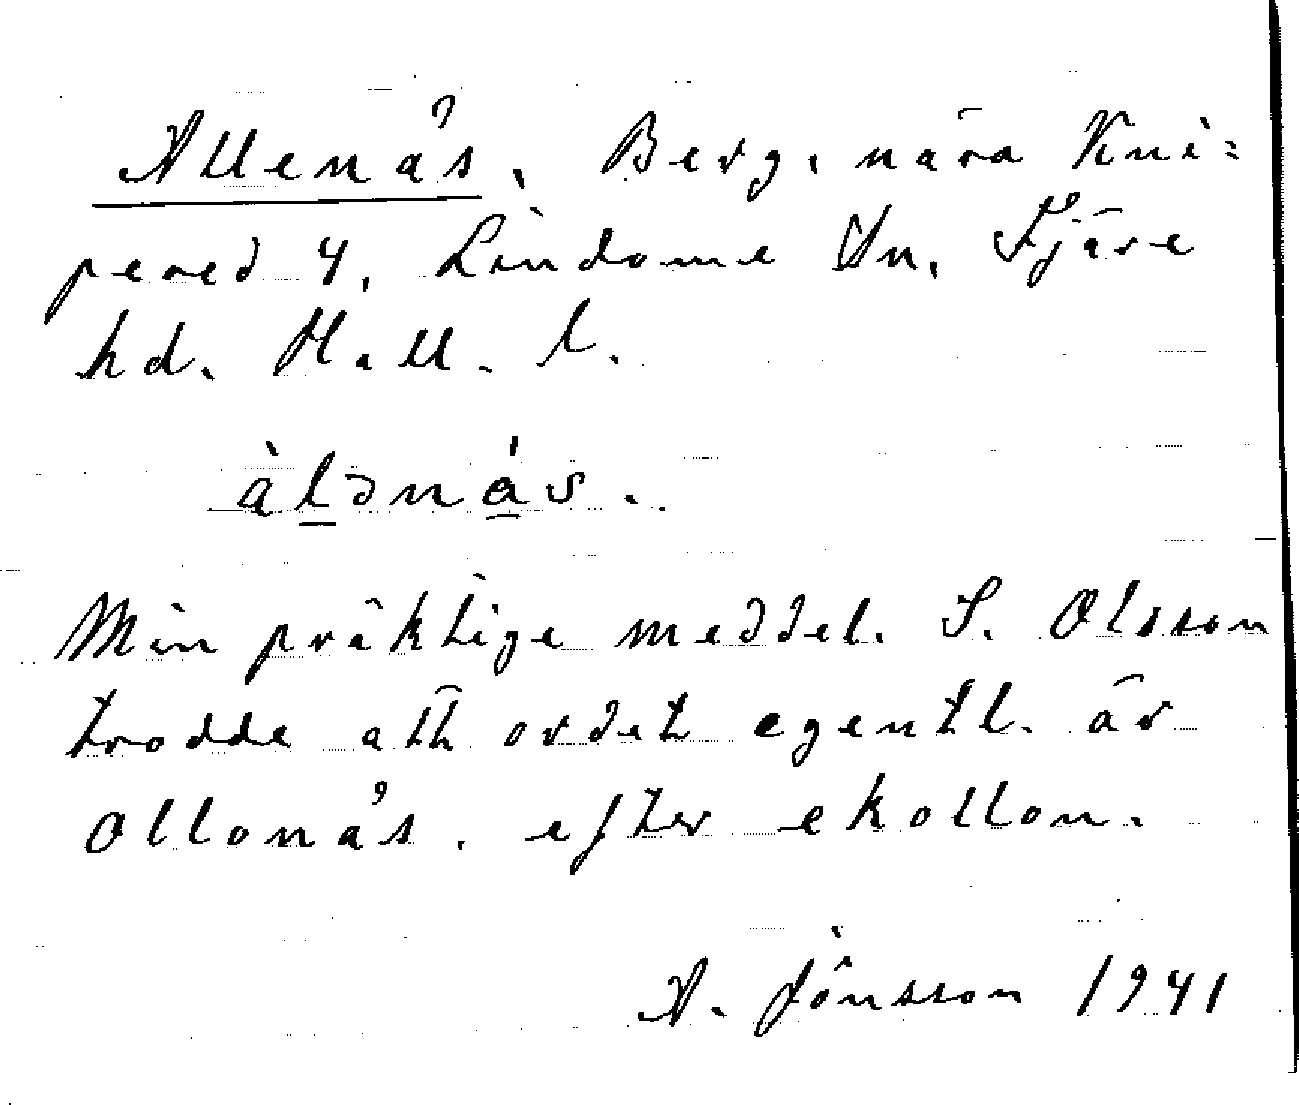 Allenås. Berg, nära Kni=
pered 4, Lindome Sn. Fjäre
hd. Hall. l.
àlənás.
Min präktige meddel. S. Olsson
trodde att ordet egentl. är
Ollonås. efter ekollon.
A. Jönsson 1941